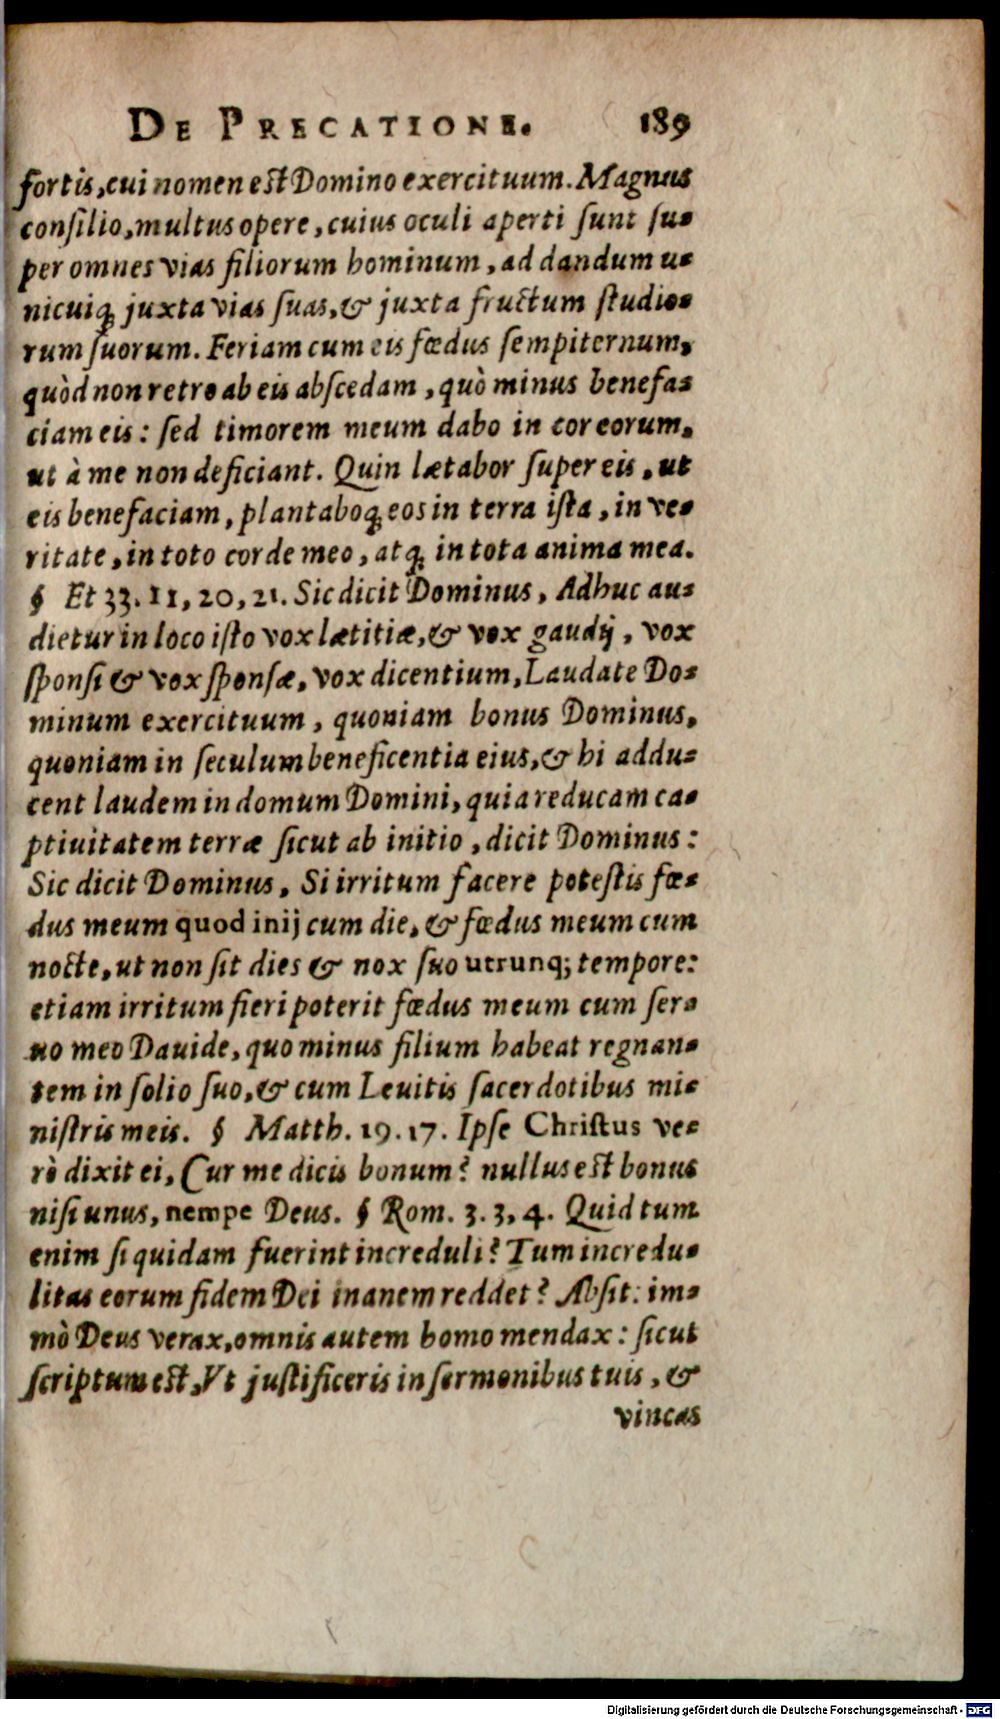 DE PRECATIONE. 189
fortis, cui nomen est Domino exercituum. Magnus
consilio, multus opere, cuius oculi aperti sunt su-
per omnes vias filiorum hominum, ad dandum u-
nicuiq; juxta vias suas, & juxta fructum studio-
rum suorum. Feriam cum eis fœdus sempiternum,
quòd non retro ab eis abscedam, quò minus benefa-
ciam eis: sed timorem meum dabo in cor eorum,
ut à me non deficiant. Quin lætabor super eis, ut
eis benefaciam, plantaboq; eos in terra ista, in ve-
ritate, in toto corde meo, atq; in tota anima mea.
§ Et 33. 11, 20, 21. Sic dicit Dominus, Adhuc au-
dietur in loco isto vox lætitiæ, & vox gaudij, vox
sponsi & vox sponsæ, vox dicentium, Laudate Do-
minum exercituum, quoniam bonus Dominus,
quoniam in seculum beneficentia eius, & hi addu-
cent laudem in domum Domini, quia reducam ca-
ptiuitatem terræ sicut ab initio, dicit Dominus:
Sic dicit Dominus, Si irritum facere potestis fœ-
dus meum quod inij cum die, & fœdus meum cum
nocte, ut non sit dies & nox suo utrunq; tempore:
etiam irritum fieri poterit fœdus meum cum ser-
uo meo Dauide, quo minus filium habeat regnan-
tem in solio suo, & cum Leuitis sacerdotibus mi-
nistris meis. § Matth. 19. 17. Ipse Christus ve-
rò dixit ei, Cur me dicis bonum? nullus est bonus
nisi unus, nempe Deus. § Rom. 3. 3, 4. Quid tum
enim si quidam fuerint increduli? Tum incredu-
litas eorum fidem Dei inanem reddet? Absit: im-
mò Deus verax, omnis autem homo mendax: sicut
scriptum est, Ut justificeris in sermonibus tuis, &
vincas
Digitalisierung gefördert durch die Deutsche Forschungsgemeinschaft - DFG